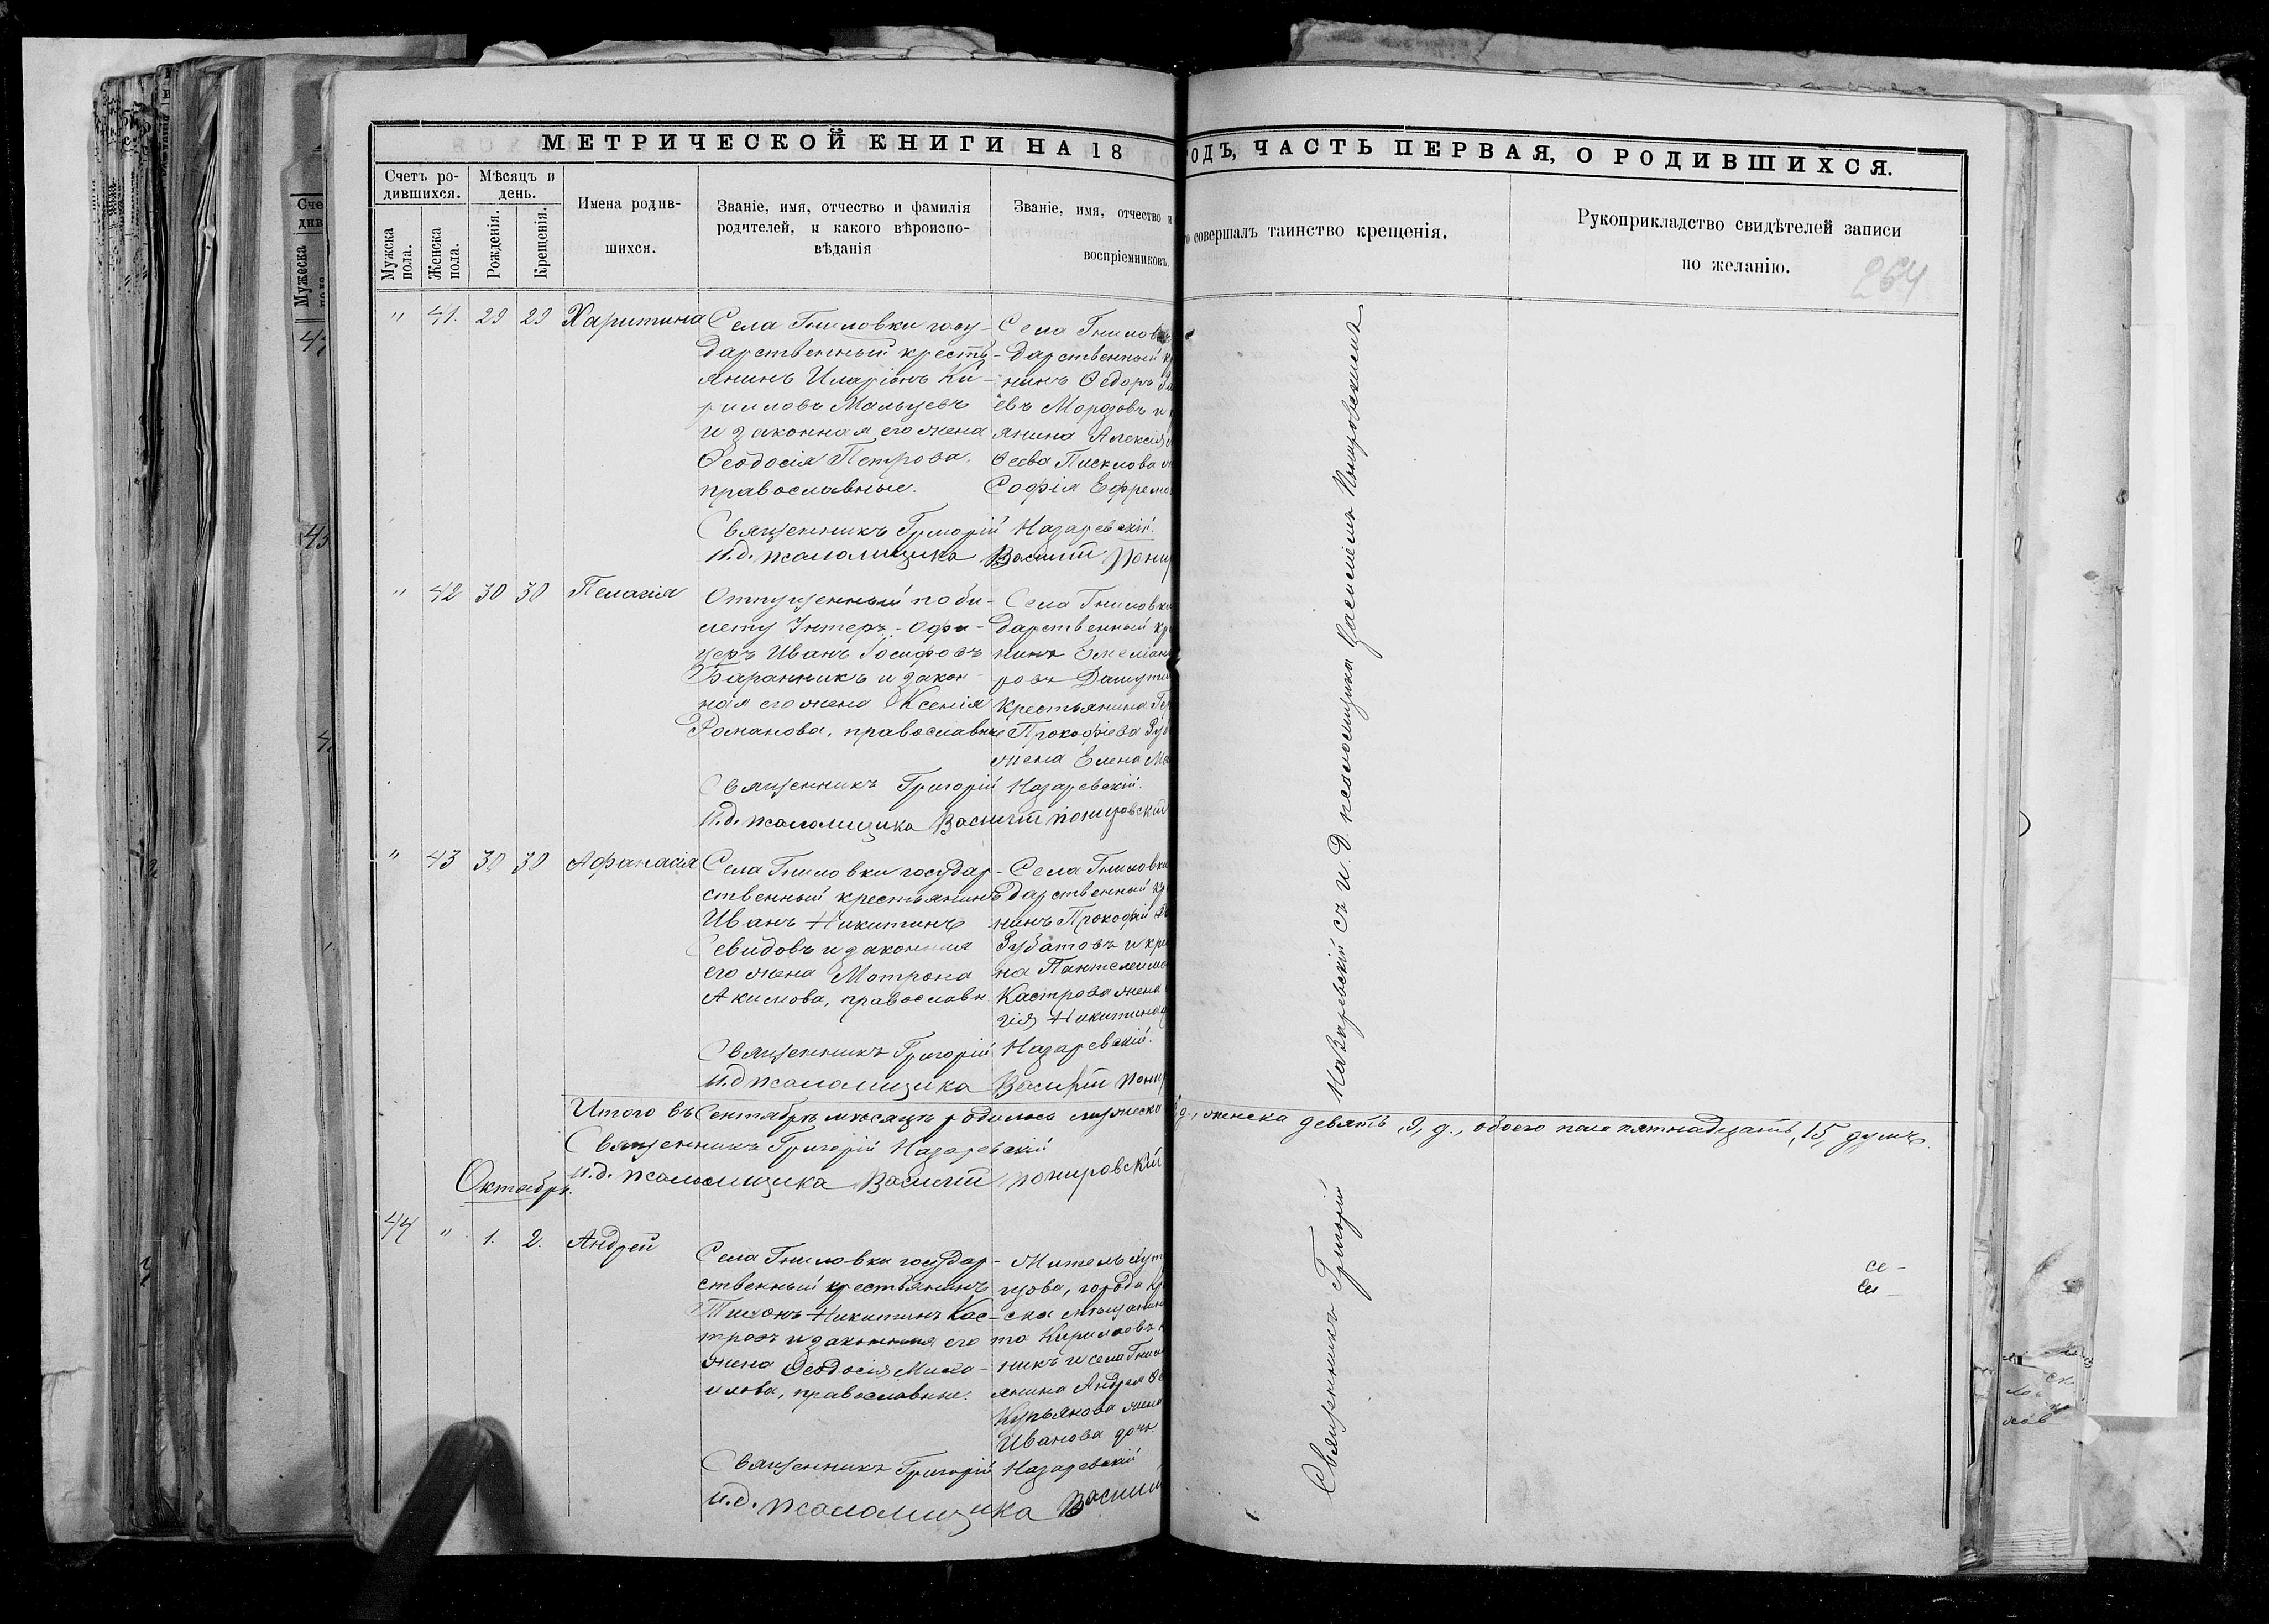 МЕТРИЧЕСКОЙ КНИГИ НА 18
ОДЪ, ЧАСТЬ ПЕРВАЯ, О РОДИВШИХСЯ.
Счетъ ро-
дившихся.
Мужска
пола.
Женска
пола.
Мѣсяцъ и
день.
Рожденія.
Крещенія.
Имена родив-
шихся.
Званіе, имя, отчество и фамилія
родителей, и какого вѣроиспо-
вѣданія
Званіе, имя, отчество и
воспріемниковъ.
совершалъ таинство крещенія.
Рукоприкладство свидѣтелей записи
по желанію.
264
" 41. 29 29 Харитина
Села Гниловки госу-
дарственный кресть-
янинъ Иларіонъ Ки-
рилловъ Мальцевъ
и законная его жена
Ѳеодосія Петрова.
православные.
Села Гнилов
дарственный к
нинъ Ѳедоръ
евъ Морозовъ и
янина Алексія
Ѳеева Писклова
Софія Ефремо
Священникъ Григорій Назаревскій.
И.д. псаломщика Василій Пони
" 42 30 30 Пелагія
Отпущенный по би-
лету Унтеръ-Офи-
церъ Иванъ Іосифовъ
Баранникъ и закон-
ная его жена Ксенія
Романова, православные
Села Гниловки
дарственный кр
нинъ Емеліан
ровъ
крестьянина
Прокофіева
жена Елена Ма
Священникъ Григорій Назаревскій.
И.д. псаломщика Василій Понировскій
" 43 30 30 Афанасія
Села Гниловки государ-
ственный крестьянинъ
Иванъ Никитинъ
Севидовъ и законная
его жена Мотрона
Акимова, православн
Села Гниловки
дарственный кр
нинъ Прокофій
Рубатовъ и кре
на Пантелеимо
Кастрова жена
гія Никитина
Священникъ Григорій Назаревскій.
И.д псаломщика Василій Пони
Итого въ Сентябрѣ мѣсяцѣ родилось мужеска
д., женска девять, 9, д., обоего пола пятнадцать, 15, душъ.
Священникъ Григорій Назаревскій
И.д. псаломщика Василій Понировскій
Октябрь.
44 " 1. 2. Андрей
Села Гниловки государ-
ственный крестьянинъ
Тихонъ Никитинъ Кас-
тровъ и законная его
жена Ѳеодосія Миха-
илова, православные.
Житель хут
цова, города
ска мѣщанин
та Кириловъ
никъ и села Гнил
янина Андрея
Купьянова жена
Иванова дочь
Священникъ Григорій Назаревскій
И.д. псаломщика Васил
Священникъ Григорій Назаревскій съ и. д. псаломщика Василіемъ Понировскимъ